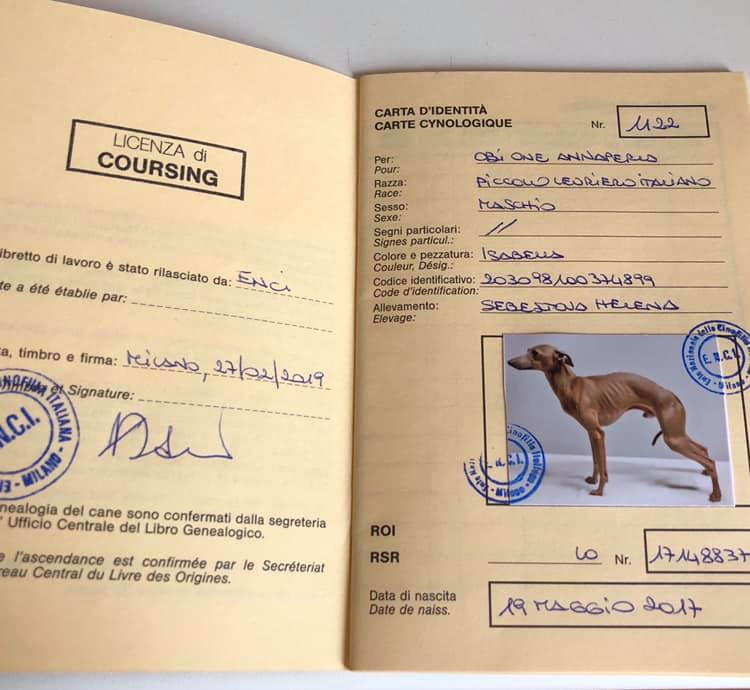 LICENZA di
COURSING
ibretto di lavoro è stato rilasciato da: ENCI
te a été établie par:
ta, timbro e firma: MILANO, 27/02/2019
et Signature:
CINOFILIA ITALIANA
N.C.I.
MILANO
nealogia del cane sono confermati dalla segreteria
Ufficio Centrale del Libro Genealogico.
e l'ascendance est confirmée par le Secrétariat
reau Central du Livre des Origines.
CARTA D'IDENTITÀ
CARTE CYNOLOGIQUE
Nr. 1122
Per: OBI ONE ANNAPERLA
Pour:
Razza: PICCOLO LEVRIERO ITALIANO
Race:
Sesso: MASCHIO
Sexe:
Segni particolari: //
Signes particul.:
Colore e pezzatura: ISABELLA
Couleur, Désig.:
Codice identificativo: 203098100374899
Code d'identification:
Allevamento: HELENA
Elevage:
Ente Nazionale della Cinofilia
E.N.C.I.
Cinofilia Italiana
N.C.I.
ROI
RSR LO Nr. 17148837
Data di nascita
Date de naiss. 19 MAGGIO 2017